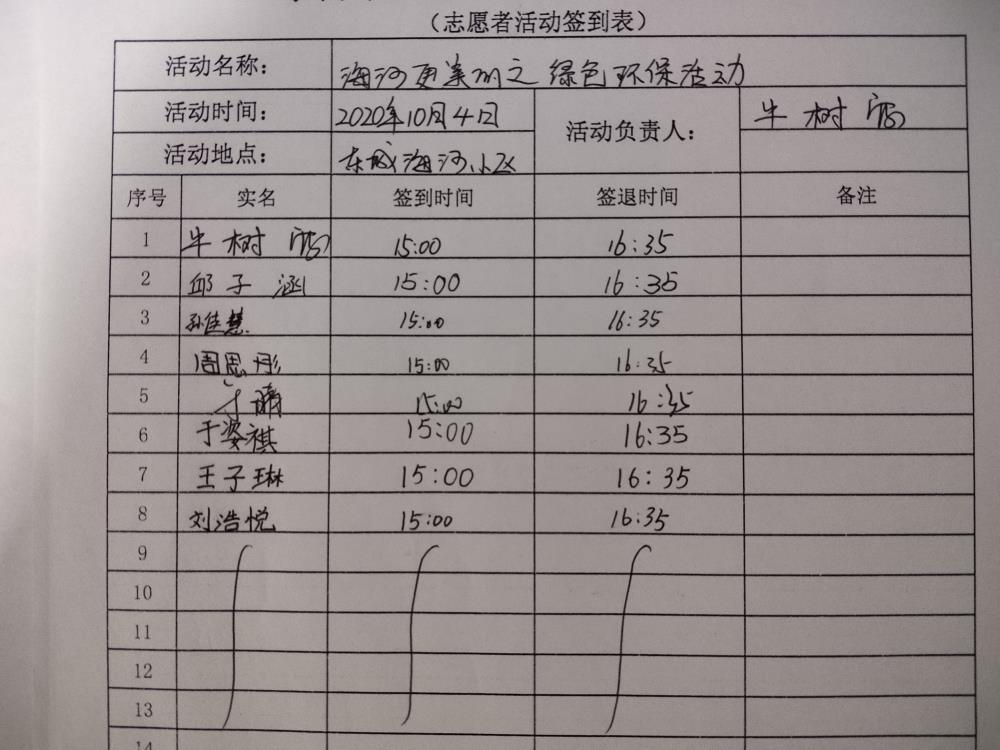 （志愿者活动签到表）
活动名称： 海河更美丽之绿色环保活动
活动时间： 2020年10月4日 活动负责人： 牛树
活动地点： 东城海河小区
序号 实名 签到时间 签退时间 备注
1 牛树 15:00 16:35
2 邱子涵 15:00 16:35
3 孙佳慧 15:00 16:35
4 周思彤 15:00 16:35
5 15:00 16:35
6 于婆祺 15:00 16:35
7 王子琳 15:00 16:35
8 刘浩悦 15:00 16:35
9
10
11
12
13
14